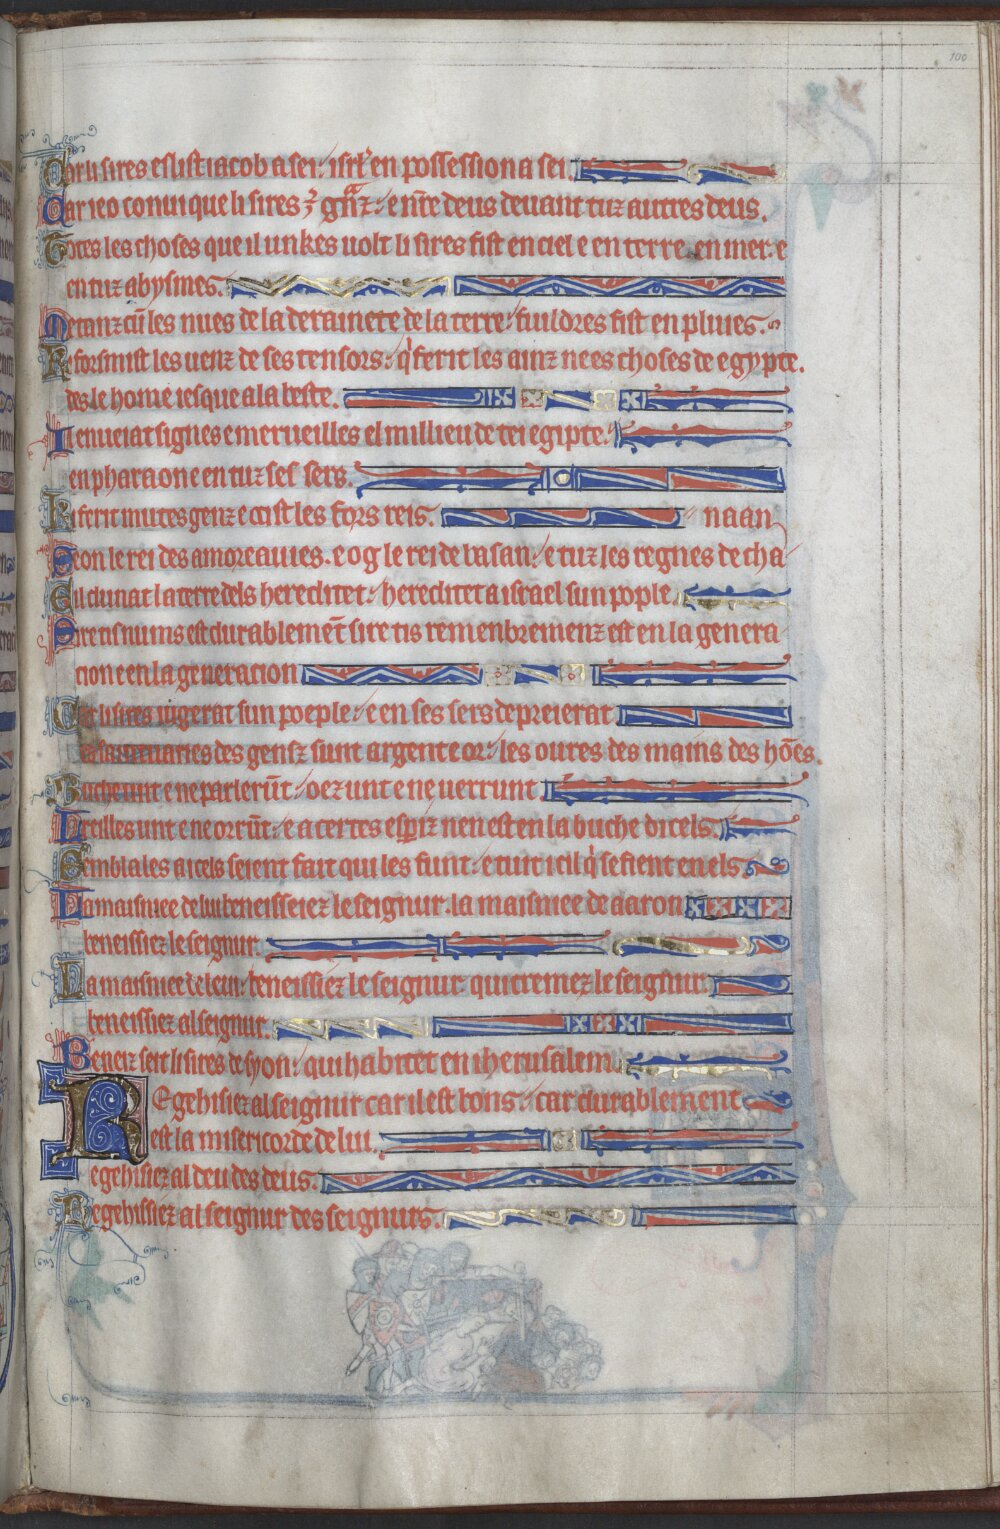 100
Car li sires eslist iacob a sei: isrl' en possession a sei.
Car ieo conui que li sires est granz: e nre deus deuant tuz autres deus.
Totes les choses que il unkes uolt li sires fist en ciel e en terre. en mer. e
en tuz abysmes.
les nues de la deraineté de la terre: fuildres fist en pluies.
Ki forsmist les uenz de ses tensors: q' ferit les ainz nees choses de egypte.
des le home iesque a la beste.
enueiat signes e merueilles el millieu de tei egipte.
en pharaone en tuz ses sers.
Ki ferit mutes genz e occist les fors reis.
naan
Seon le rei des amoreauies. e og le rei de basan: e tuz les regnes de cha
E il dunat la terre dels hereditet: hereditet a israel sun pople.
Sire tis nums est durablement sire tis remenbremenz est en la genera
cion e en la generacion
Car li sires uigerat sun poeple: e en ses sers depreierat
des gensz sunt argent e or: les oures des mains des hoes.
Buche unt e ne parlerut: oez unt e ne uerrunt.
Oreilles unt e ne orrut: e a certes espiriz nen est en la buche dicels.
Semblales a icels seient fait qui les funt: e tuit icil q' se fient en els.
La maisniee de beneisseiez le seignur. la maisniee de aaron
beneissiez le seignur.
La maisniee de leui: beneissiez le seignur qui cremez le seignur.
beneissiez al seignur.
Beneiz seit li sires de syon: qui habitet en iherusalem.
Regehisiez al seignur car il est bons: car durablement
est la misericorde de lui.
Regehisiez al deu des deus.
Regehissiez al seignur des seignurs.